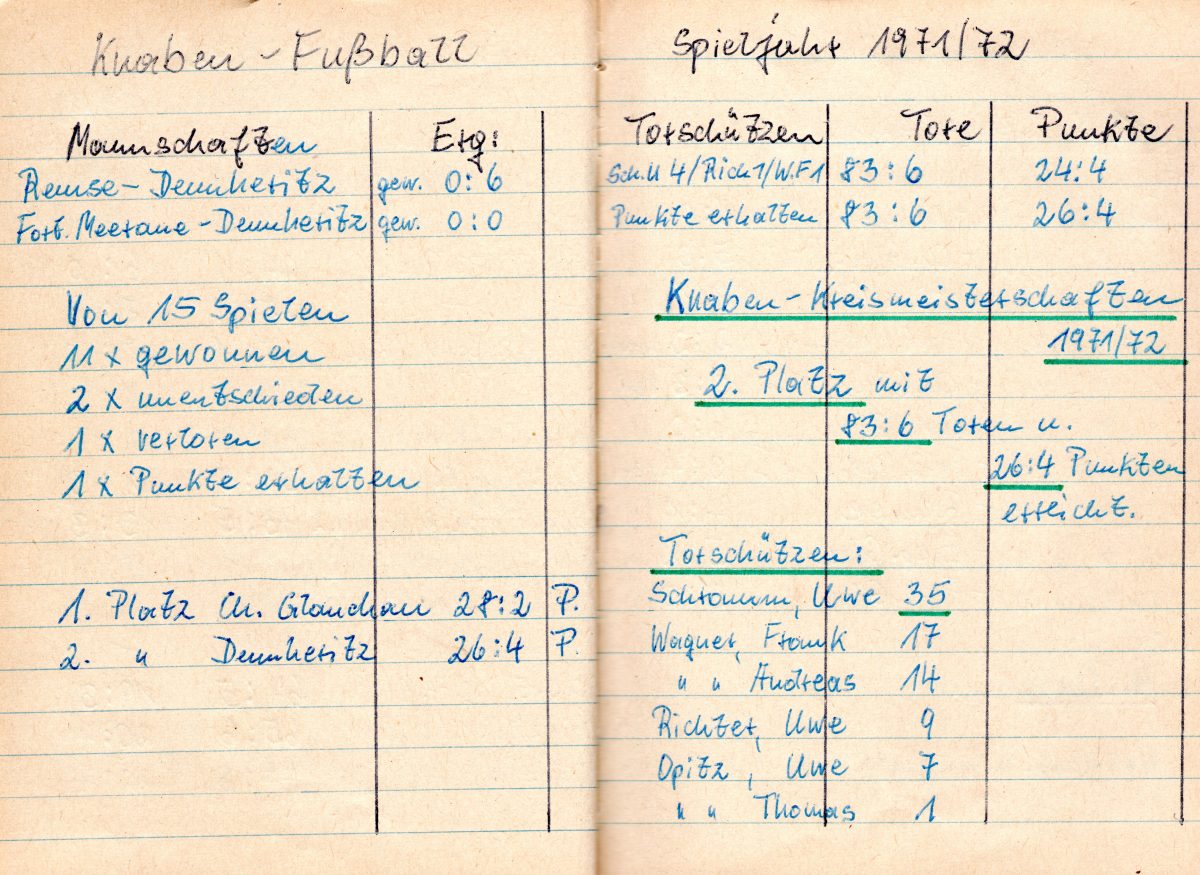 Knaben - Fußball
Mannschaften Erg:
Remse - Dennheritz gew. 0:6
Fort. Meerane - Dennheritz gew. 0:0
Von 15 Spielen
11 x gewonnen
2 x unentschieden
1 x verloren
1 x Punkte erhalten
1. Platz Ch. Glauchau 28:2 P.
2. " Dennheritz 26:4 P.
Spieljahr 1971/72
Torschützen Tore Punkte
Sch.U 4/Rich 1/W.F 1 83:6 24:4
Punkte erhalten 83:6 26:4
Knaben - Kreismeisterschaften
1971/72
2. Platz mit
83:6 Toren u.
26:4 Punkten
erreicht.
Torschützen:
Schramm, Uwe 35
Wagner, Frank 17
" " Andreas 14
Richter, Uwe 9
Opitz, Uwe 7
" " Thomas 1